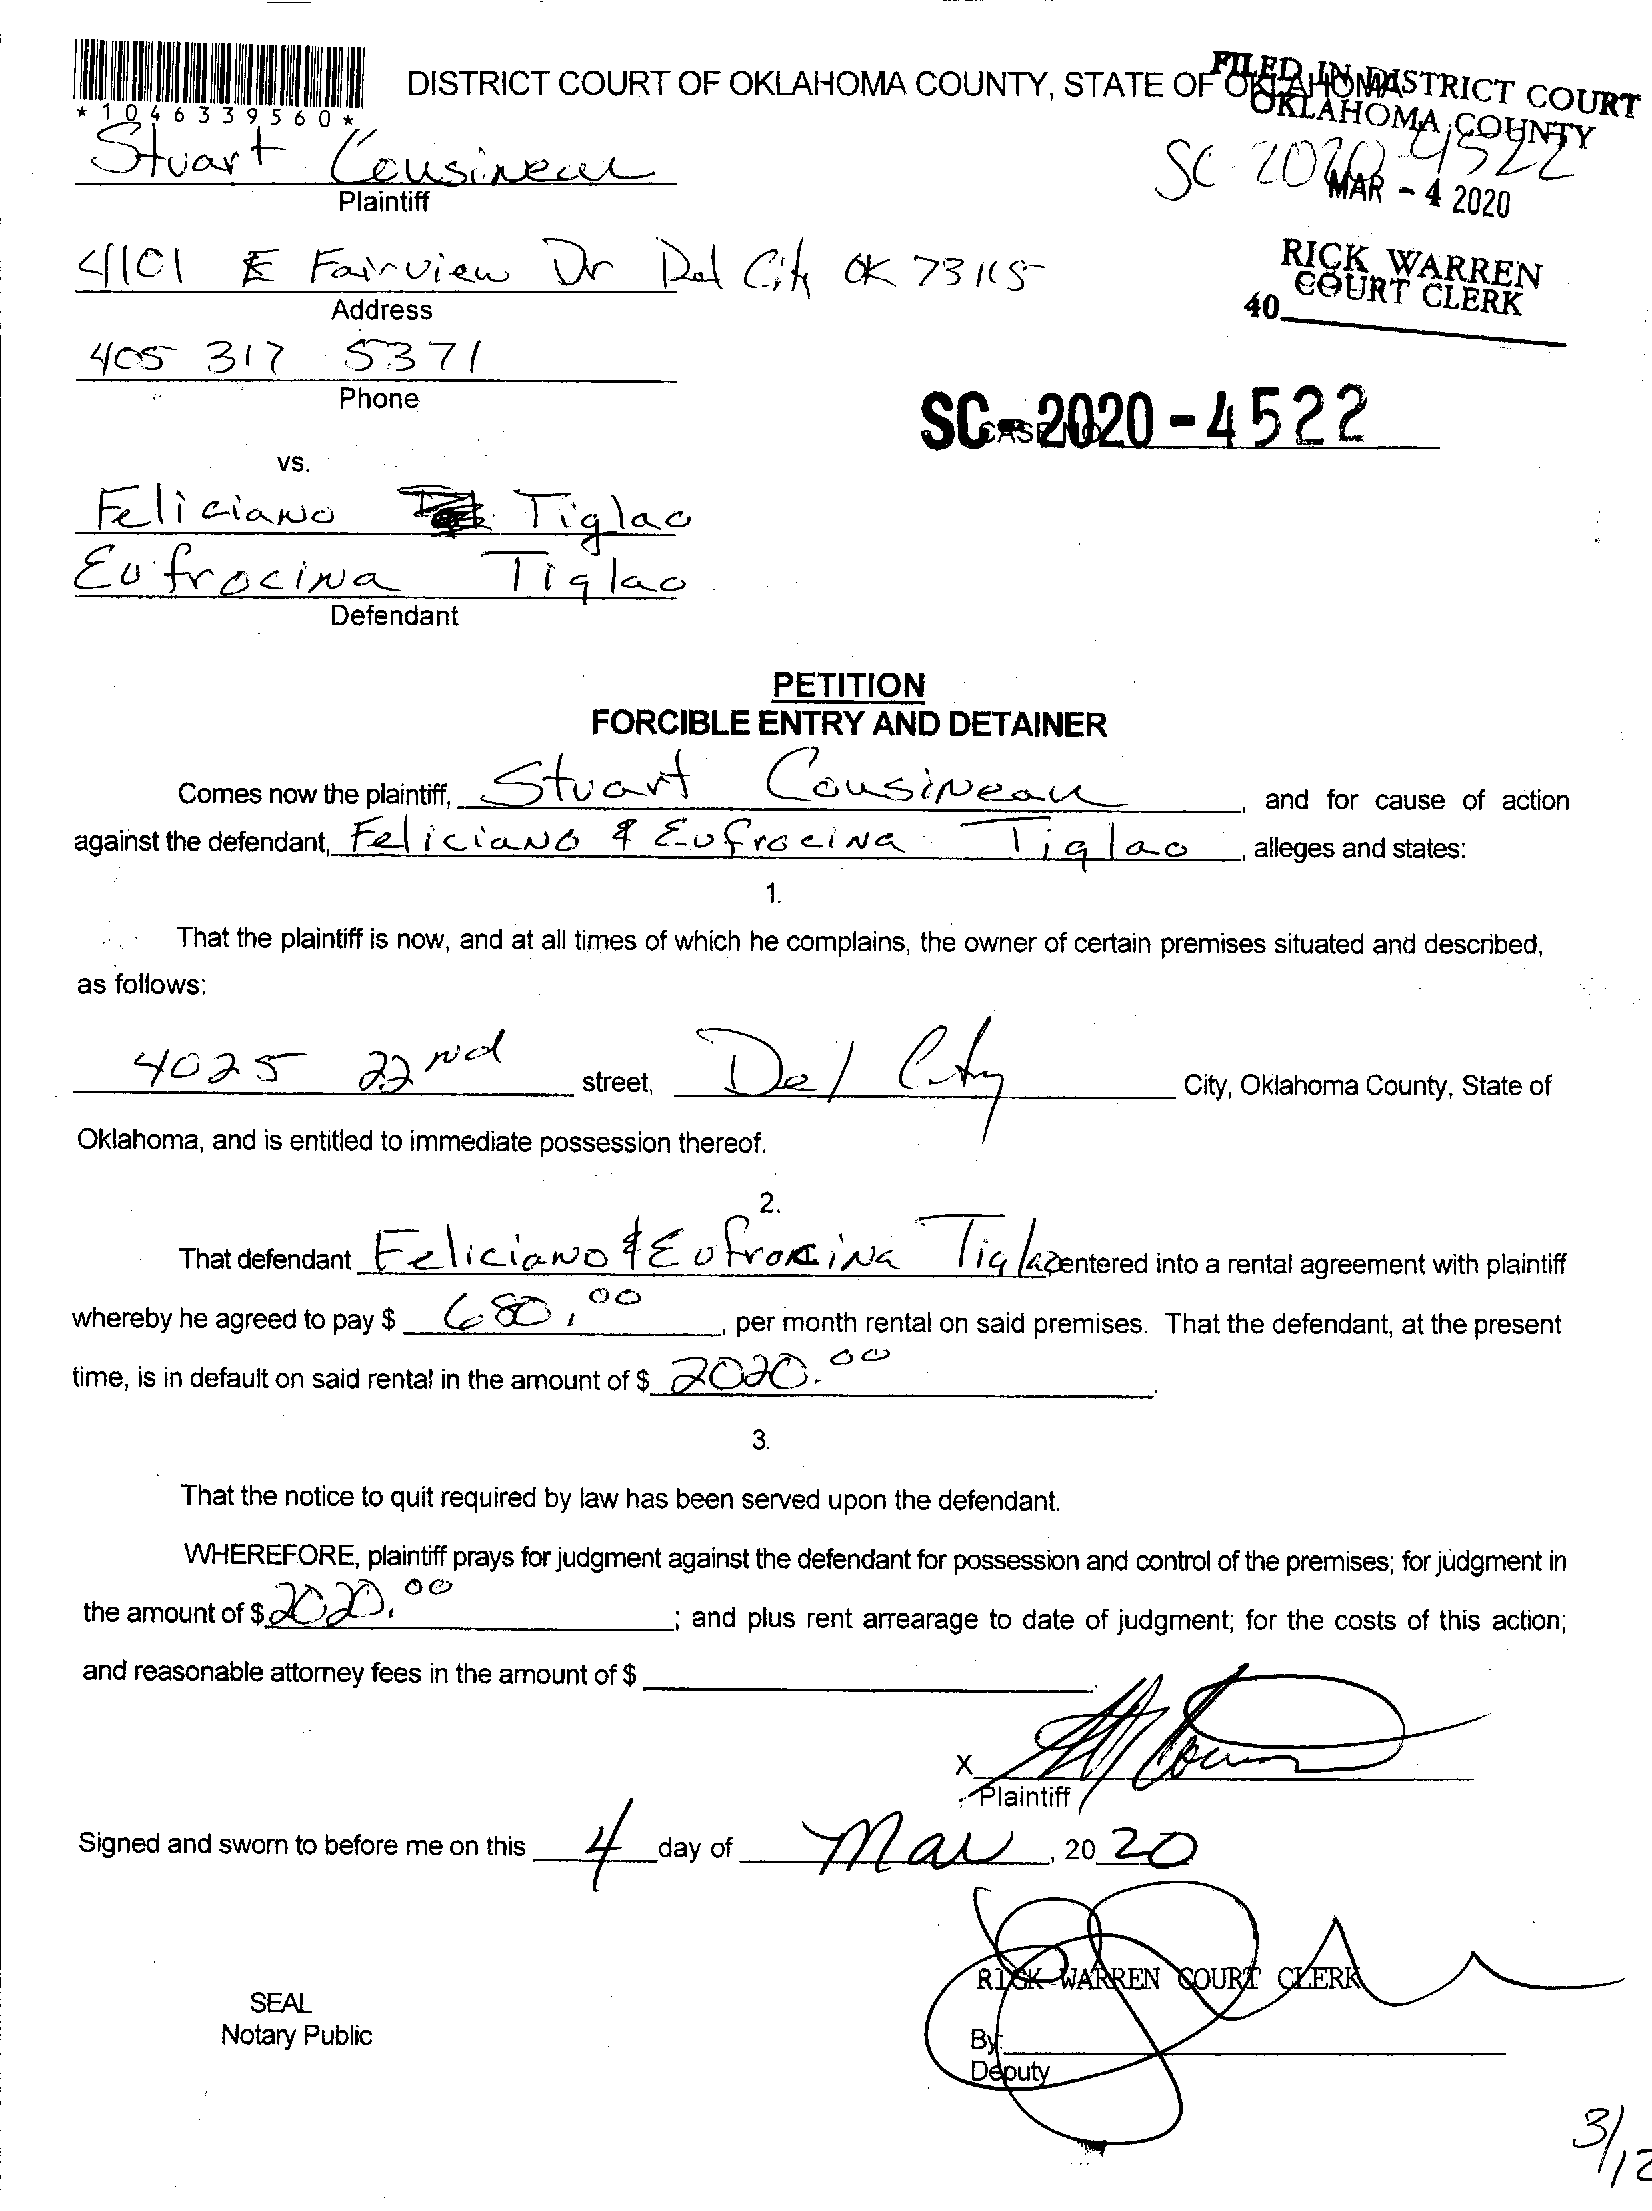 DISTRICT COURT OF OKLAHOMA COUNTY, STATE OF OKLAHOMA
FILED IN DISTRICT COURT
OKLAHOMA COUNTY
*1046339560*
Stuart Cousineau
SC 2020-4522
Plaintiff
MAR - 4 2020
4101 E Fairview Dr Del City OK 73115
RICK WARREN
COURT CLERK
Address
40
405 317 5371
Phone
SC-2020-4522
CASE NO.
vs.
Feliciano Tiglao
Eufrocina Tiglao
Defendant
PETITION
FORCIBLE ENTRY AND DETAINER
Comes now the plaintiff, Stuart Cousineau, and for cause of action
against the defendant, Feliciano & Eufrocina Tiglao, alleges and states:
1.
That the plaintiff is now, and at all times of which he complains, the owner of certain premises situated and described,
as follows:
4025 22nd street, Del City City, Oklahoma County, State of
Oklahoma, and is entitled to immediate possession thereof.
2.
That defendant Feliciano & Eufrocina Tiglao entered into a rental agreement with plaintiff
whereby he agreed to pay $ 680.00, per month rental on said premises. That the defendant, at the present
time, is in default on said rental in the amount of $ 2020.00.
3.
That the notice to quit required by law has been served upon the defendant.
WHEREFORE, plaintiff prays for judgment against the defendant for possession and control of the premises; for judgment in
the amount of $ 2020.00; and plus rent arrearage to date of judgment; for the costs of this action;
and reasonable attorney fees in the amount of $
X
Plaintiff
Signed and sworn to before me on this 4 day of Mar, 2020
RICK WARREN COURT CLERK
SEAL
Notary Public
By:
Deputy
3/12